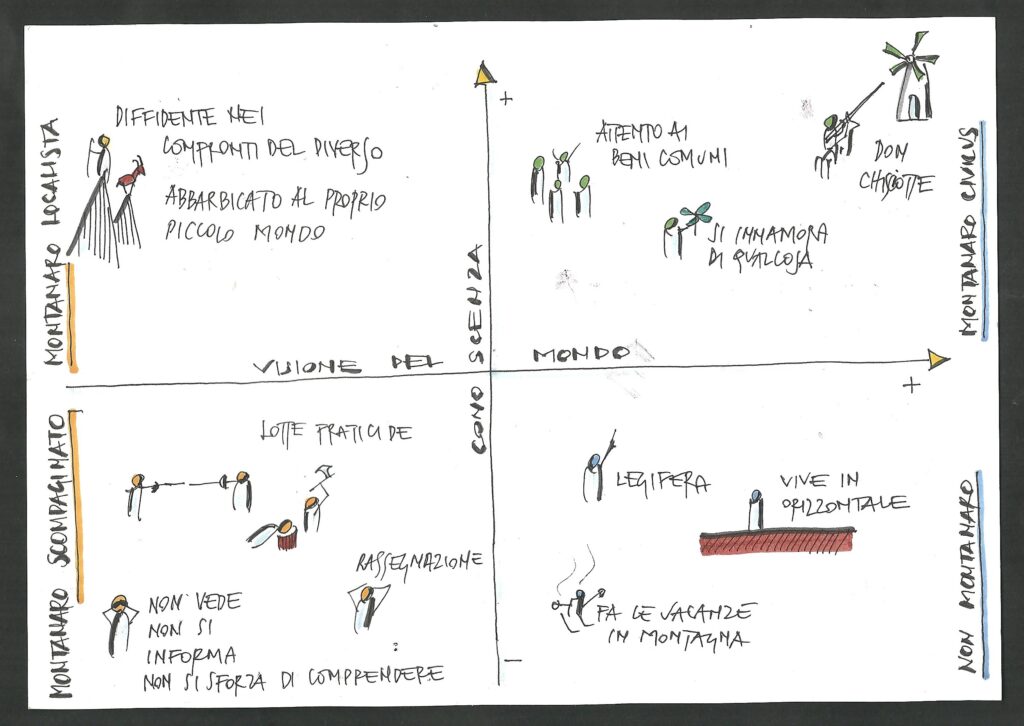 MONTANARO LOCALISTA
DIFFIDENTE NEI
CONFRONTI DEL DIVERSO
ABBARBICATO AL PROPRIO
PICCOLO MONDO
+
ATTENTO AI
BENI COMUNI
SI INNAMORA
DI QUALCOSA
DON
CHISCIOTTE
MONTANARO CIVICUS
VISIONE DEL MONDO
+
CONOSCENZA
MONTANARO SCOMPAGINATO
LOTTE FRATICIDE
RASSEGNAZIONE
NON VEDE
NON SI
INFORMA
NON SI SFORZA DI COMPRENDERE
LEGIFERA
VIVE IN
ORIZZONTALE
FA LE VACANZE
IN MONTAGNA
−
NON MONTANARO